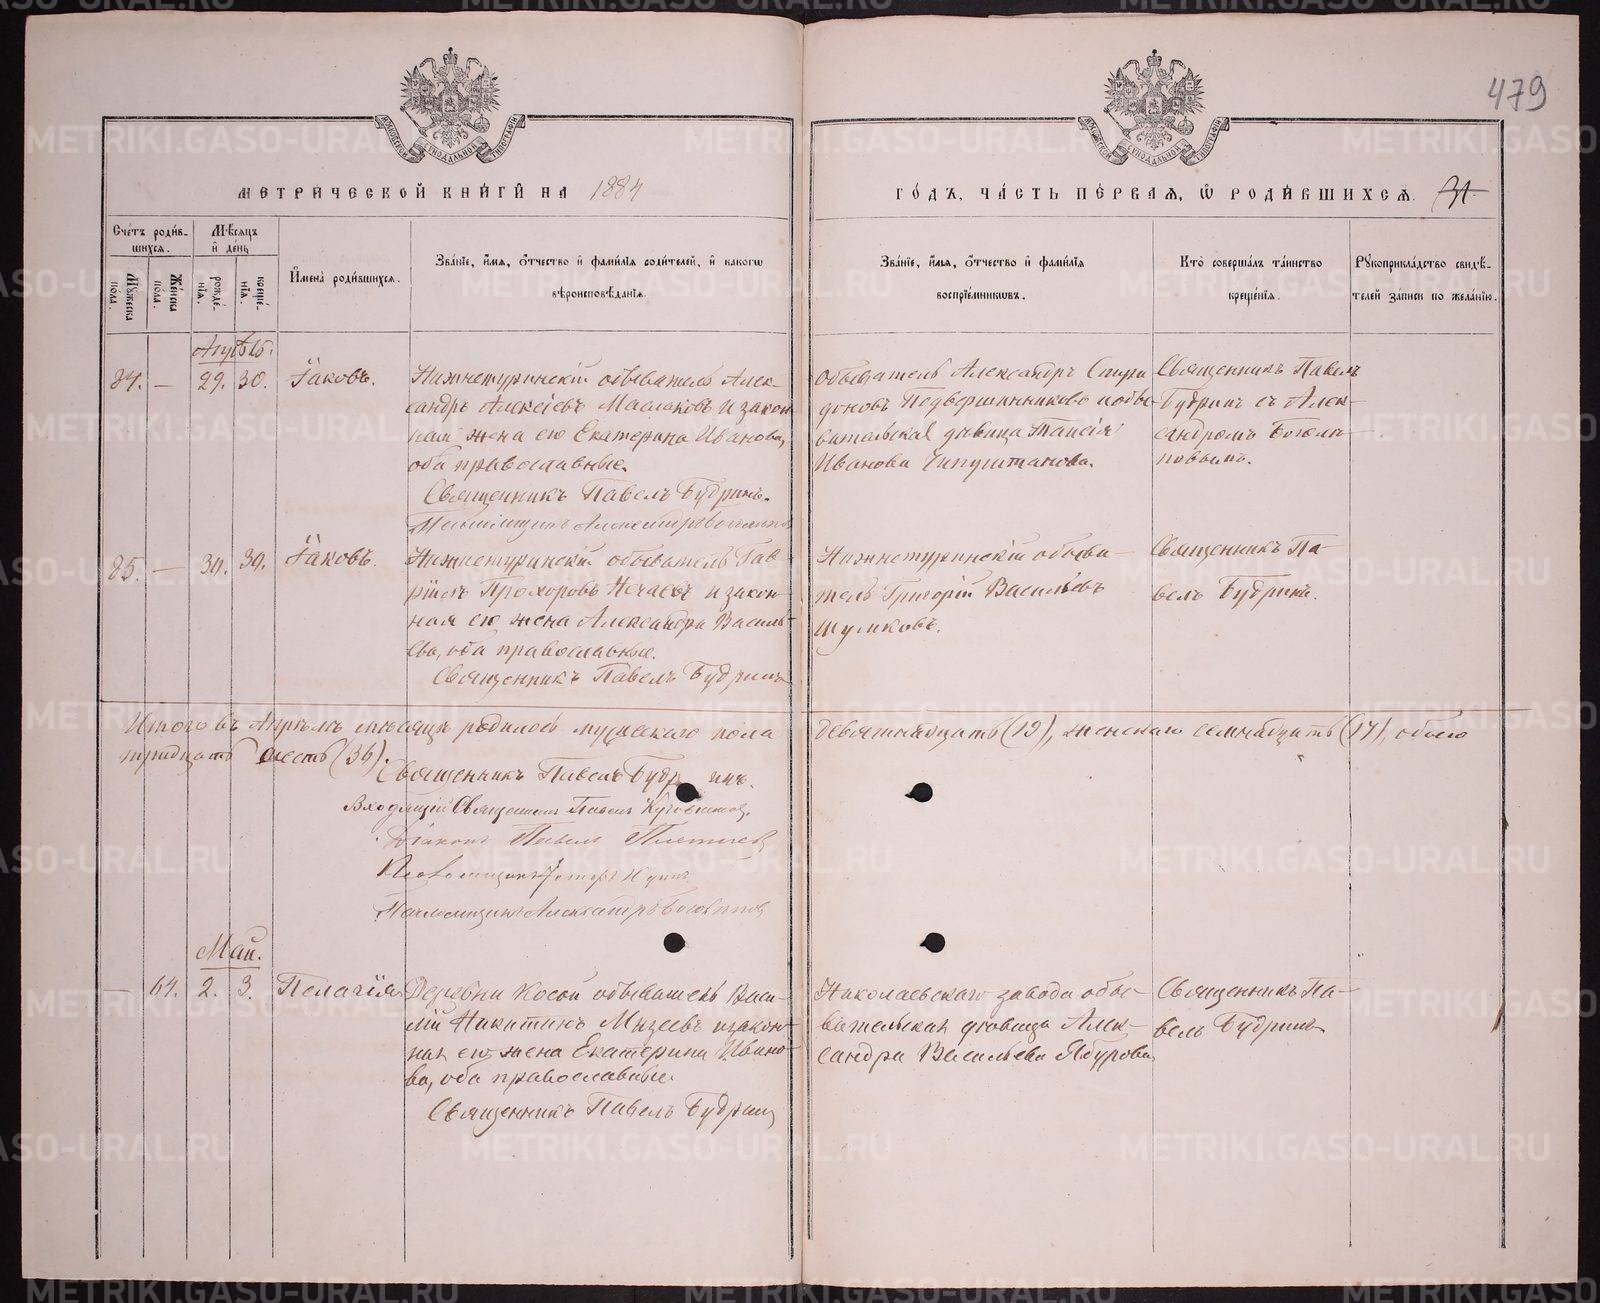 479
МОСКОВСКОЙ СѴНОДАЛЬНОЙ ТИПОГРАФІИ
МОСКОВСКОЙ СѴНОДАЛЬНОЙ ТИПОГРАФІИ
МЕТРИЧЕСКОЙ КНИГИ НА 1884
ГОДЪ, ЧАСТЬ ПЕРВАЯ, Ѿ РОДИВШИХСЯ. 31.
Счетъ родившихся.
Мужеска пола.
Женска пола.
Мѣсяцъ и день
рожденія.
крещенія.
Имена родившихся.
Званіе, имя, отчество и фамилія родителей, и какого
вѣроисповѣданія.
Званіе, имя, отчество и фамилія
воспріемниковъ.
Кто совершалъ таинство
крещенія.
Рукоприкладство свидѣ-
телей записи по желанію.
Апрѣль.
84. — 29. 30. Іаковъ.
Нижнетуринскій обыватель Алек-
сандръ Алексіевъ Маслаковъ и закон-
ная жена его Екатерина Иванова,
оба православные.
Священникъ Павелъ Будринъ.
Обыватель Александръ Спири
доновъ Подвершинниковъ и обы-
вательская дѣвица Таисія
Иванова
Священникъ Павелъ
Будринъ съ Алек-
сандромъ
85. — 30. 30. Іаковъ.
Нижнетуринскій обыватель Гав-
ріилъ Прохоровъ Нечаевъ и закон-
ная его жена Александра Василь-
ева, оба православные.
Священникъ Павелъ Будринъ
Нижнетуринскій обыва-
тель Григорій Васильевъ
Шумковъ.
Священникъ Па-
велъ Будринъ.
Итого въ Апрѣлѣ мѣсяцѣ родилось мужескаго пола девятнадцать (19), женскаго семнадцать (17), обоего
тридцать шесть (36).
Священникъ Павелъ Будринъ.
Входящій Священникъ Павелъ
Діаконъ Павелъ
Псаломщикъ Петръ
Псаломщикъ Александръ
Май.
— 64. 2. 3. Пелагія
Деревни Косой обыватель Васи-
лій Никитинъ Мизеевъ и закон-
ная его жена Екатерина Ивано-
ва, оба православные.
Священникъ Павелъ Будринъ
Николаевскаго завода обы-
вательская дѣвица Алек-
сандра Васильева Ябурова
Священникъ Па-
велъ Будринъ
METRIKI.GASO-URAL.RU